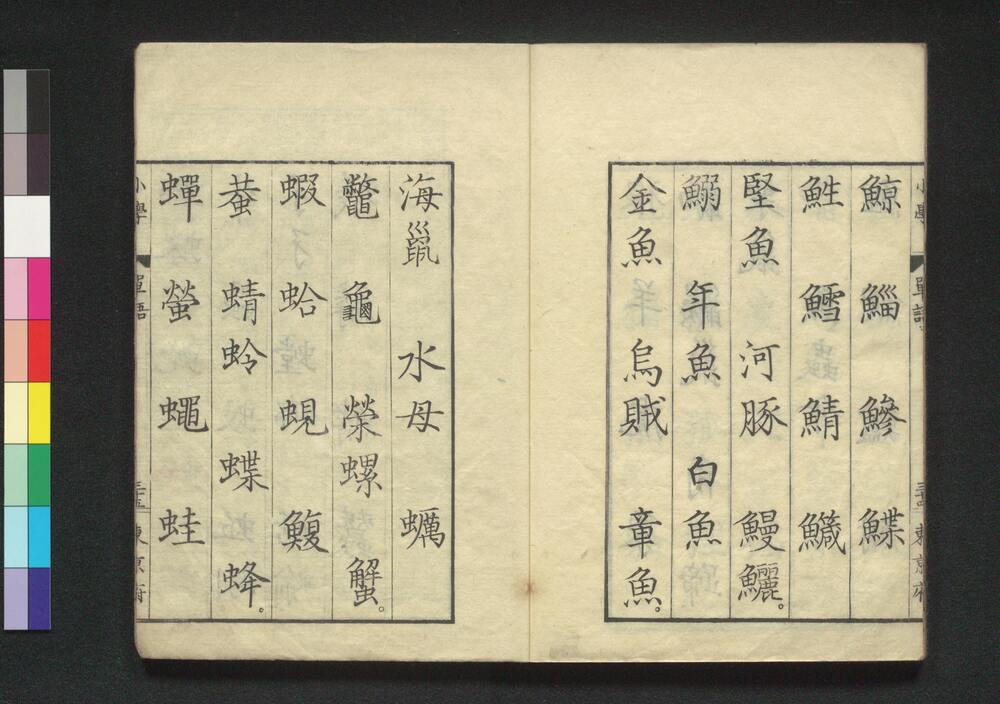 小學　單語　三十四　東京府
鯨　鯔　鰺　鰈
鮏　鱈　鯖　鱵
堅魚　河豚　鰻鱺。
鰯　年魚　白魚
金魚　烏賊　章魚。
海鼠　水母　蠣
鼈　龜　榮螺　蟹。
蝦　蛤　蜆　鰒
蚕　蜻蛉　蝶　蜂。
蟬　螢　蠅　蛙
小學　單語　三十五　東京府